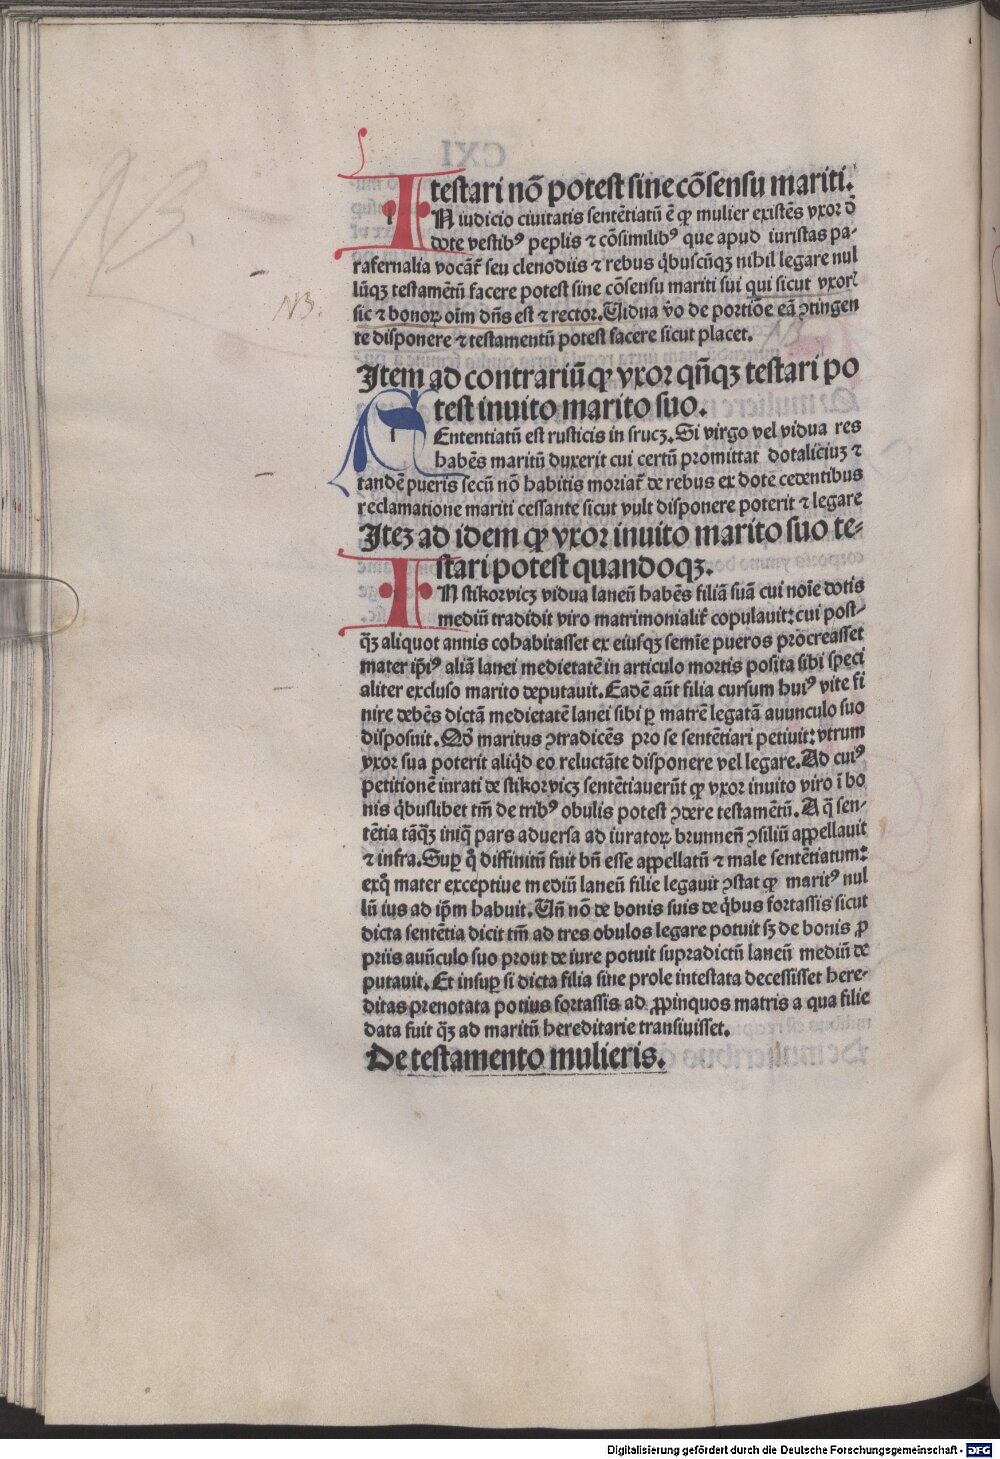 testari nō potest sine cōsensu mariti.
IN iudicio ciuitatis sentētiatū ē ꝙ mulier existēs vxor d̄
dote vestibꝰ peplis ⁊ cōsimilibꝰ que apud iuristas pa-
rafernalia vocāt̄ seu clenodiis ⁊ rebus q̇buscūqꝫ nihil legare nul
lūqꝫ testamētū facere potest sine cōsensu mariti sui qui sicut vxorꝭ
sic ⁊ bonoꝝ oīm dn̄s est ⁊ rector. Uidua v̊o de portiōe eā ꝯtingen
te disponere ⁊ testamentū potest facere sicut placet.
NB.
Item ad contrariū ꝙ vxor qn̄qꝫ testari po
test inuito marito suo.
SEntentiatū est rusticis in srucꝫ. Si virgo vel vidua res
habēs maritū duxerit cui certū promittat dotaliciuꝫ ⁊
tandē pueris secū nō habitis moriat̄ de rebus ex dote cedentibus
reclamatione mariti cessante sicut vult disponere poterit ⁊ legare
Iteꝫ ad idem ꝙ vxor inuito marito suo te-
stari potest quandoqꝫ.
IN stikorvicꝫ vidua laneū habēs filiā suā cui noīe dotis
mediū tradidit viro matrimonialit̄ copulauit: cui post-
q̄ꝫ aliquot annis cohabitasset ex eiusqꝫ semīe pueros procreasset
mater ip̄iꝰ aliā lanei medietatē in articulo mortis posita sibi speci
aliter excluso marito deputauit. Eadē aūt filia cursum huiꝰ vite fi
nire debēs dictā medietatē lanei sibi ꝑ matrē legatā auunculo suo
disposuit. Qd̄ maritus ꝯtradicēs pro se sentētiari petiuit: vtrum
vxor sua poterit aliq̇d eo reluctāte disponere vel legare. Ad cuiꝰ
petitionē iurati de stikorvicꝫ sentētiauerūt ꝙ vxor inuito viro ī bo
nis q̇buslibet tm̄ de tribꝰ obulis potest ꝯdere testamētū. A q̄ sen-
tētia tāq̄ꝫ iniq̄ pars aduersa ad iuratoꝝ brunneñ ꝯsiliū appellauit
⁊ infra. Suꝑ q̊ diffinitū fuit bn̄ esse appellatū ⁊ male sentētiatum:
exq̊ mater exceptiue mediū laneū filie legauit ꝯstat ꝙ maritꝰ nul
lū ius ad ip̄m habuit. Un̄ nō de bonis suis de q̇bus fortassis sicut
dicta sentētia dicit tm̄ ad tres obulos legare potuit sꝫ de bonis ꝓ
priis auūculo suo prout de iure potuit supradictū laneū mediū de
putauit. Et insuꝑ si dicta filia sine prole intestata decessisset here-
ditas prenotata potius fortassis ad ꝓpinquos matris a qua filie
data fuit q̄ꝫ ad maritū hereditarie transiuisset.
De testamento mulieris.
Digitalisierung gefördert durch die Deutsche Forschungsgemeinschaft - DFG